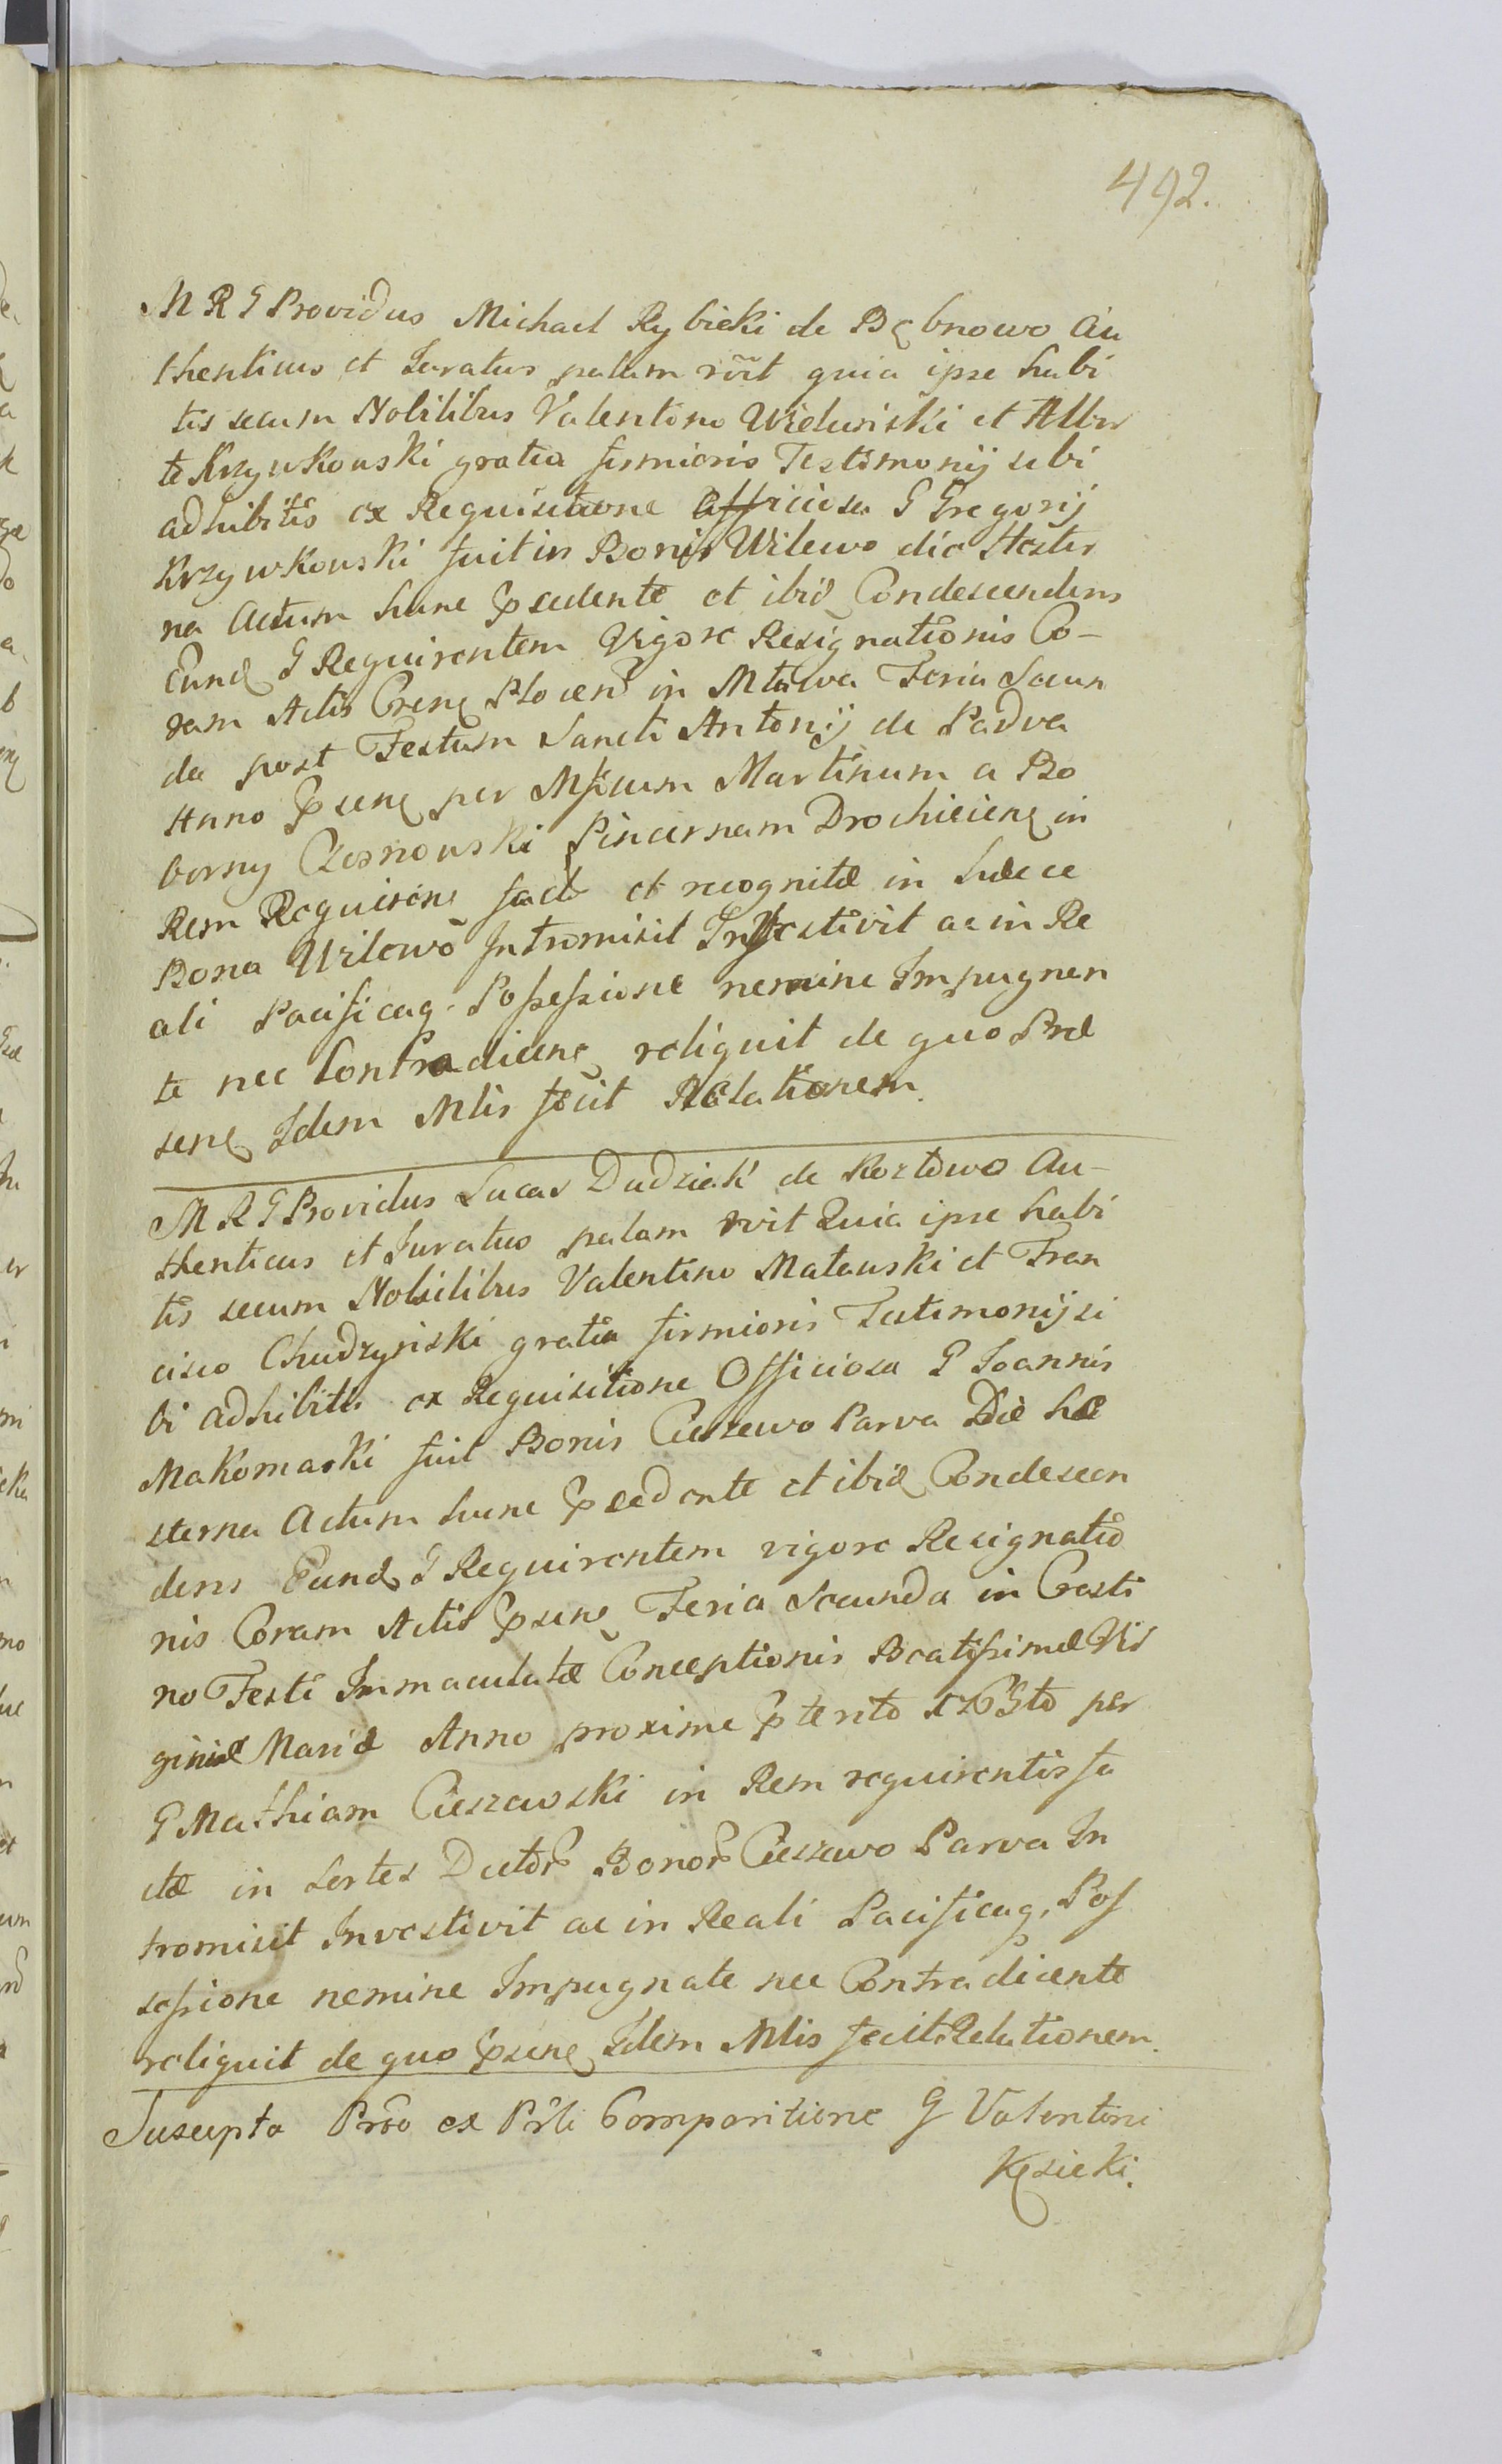 492.
M R G Providus Michael Rybicki de Bębnowo Au
thenticus et Juratus palam rōit quia ipse habi
tis secum Nobilibus Valentino Wieluński et Alber
te Krzywkowski gratia firmioris Testimonij sibi
adhibitis ex Requisitione Officiosa G Gregorij
Krzywkowski fuit in Bonis Wilewo die Hester
na Actum hunc pcedente et ibid Condescendens
Eund G Requirentem Vigore Resignationis Co-
ram Actis Crens Plocens in Mława Feria Secun
da post Festum Sancti Antonij de Padva
Anno psenę per Mficum Martinum a Bo
born̄y Czosnowski Pincernam Drochiciens in
Rem Requirens fact et recognitæ in hæcce
Bona Wilewo Intromisit Investivit ac in Re
ali Pacificaq. Possessione nemine Impugnen
te nec Contradicenę reliquit de quo Præ
senę Idem Mlis fecit Relationem.
M R G Providus Lucas Dudziak de Kozłowo Au-
thenticus et Juratus palam rvit Quia ipse habi
tis secum Nobilibus Valentino Matauski et Fran
cisco Chudzynski gratia firmioris Testimonij si
bi adhibitis ex Requisitione Officiosa G Joannis
Makomaski fuit Bonis Cieszewo Parva Die he
sterna Actum hunc pcedente et ibid Condescen
dens Eund G Requirentem vigore Resignatio
nis Coram Actis psenę Feria Secunda in Crasti
no Festi Immaculatæ Conceptionis Beatissimæ Vir
ginis Mariæ Anno proxime pterito 1763to per
G Mathiam Cieszewski in Rem requirentis fa
ctæ in Sortes Dictor Bonor Cieszewo Parva In
tromisit Investivit ac in Reali Pacificaq. Pos
sessione nemine Impugnate nec Contradicente
reliquit de quo psenę Idem Mlis fecit Relationem.
Suscepta Prōo ex Prli Comparitione G Valentini
Kęsicki.